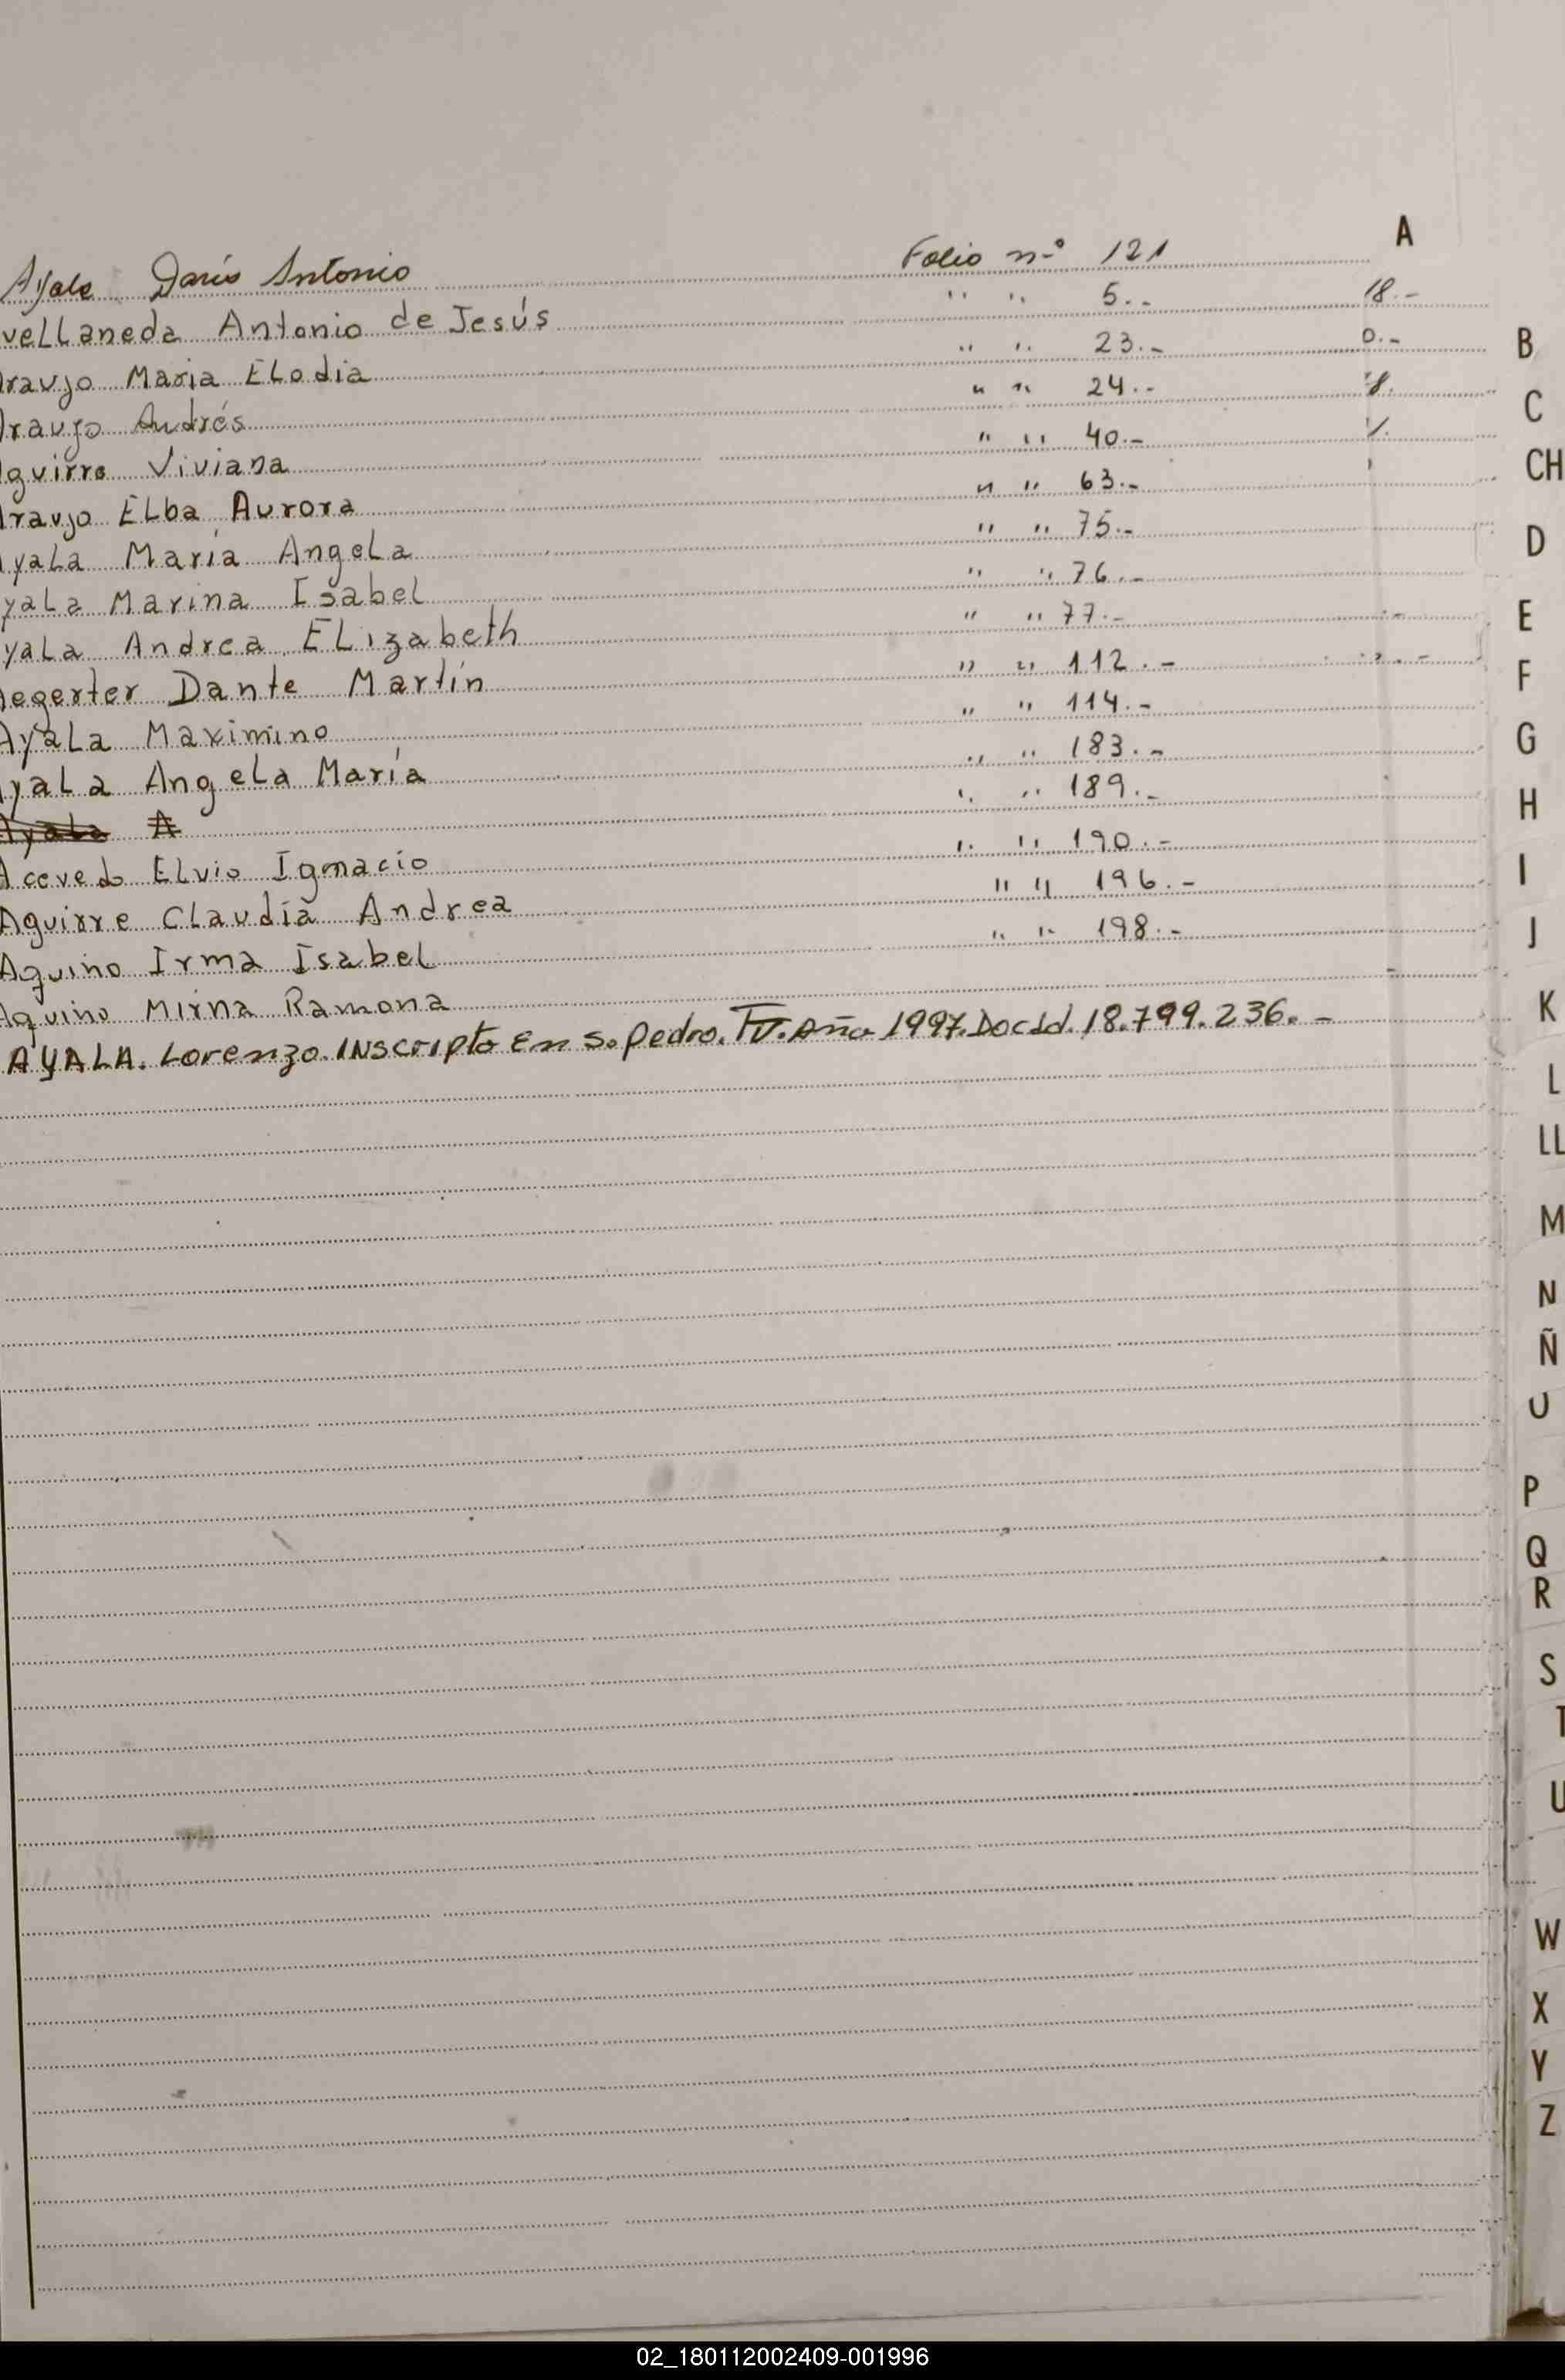 A
Ayala Darío Antonio Folio nº 121
vellaneda Antonio de Jesús " " 5.- 18.-
Araujo María Elodia " " 23.- 0.-
Araujo Andrés " " 24.-
Aguirre Viviana " " 40.-
Araujo Elba Aurora " " 63.-
Ayala María Angela " " 75.-
yala Marina Isabel " " 76.-
yala Andrea Elizabeth " " 77.-
Aegerter Dante Martín " " 112.-
Ayala Maximino " " 114.-
Ayala Angela María " " 183.-
Ayala A " " 189.-
Acevedo Elvio Ignacio " " 190.-
Aguirre Claudia Andrea " " 196.-
Aquino Irma Isabel " " 198.-
Aquino Mirna Ramona
AYALA. Lorenzo. INscripto En S. Pedro. IV. Año 1997. Doc Id. 18.799.236.-
B
C
CH
D
E
F
G
H
I
J
K
L
LL
M
N
Ñ
O
P
Q
R
S
T
U
W
X
Y
Z
02_180112002409-001996